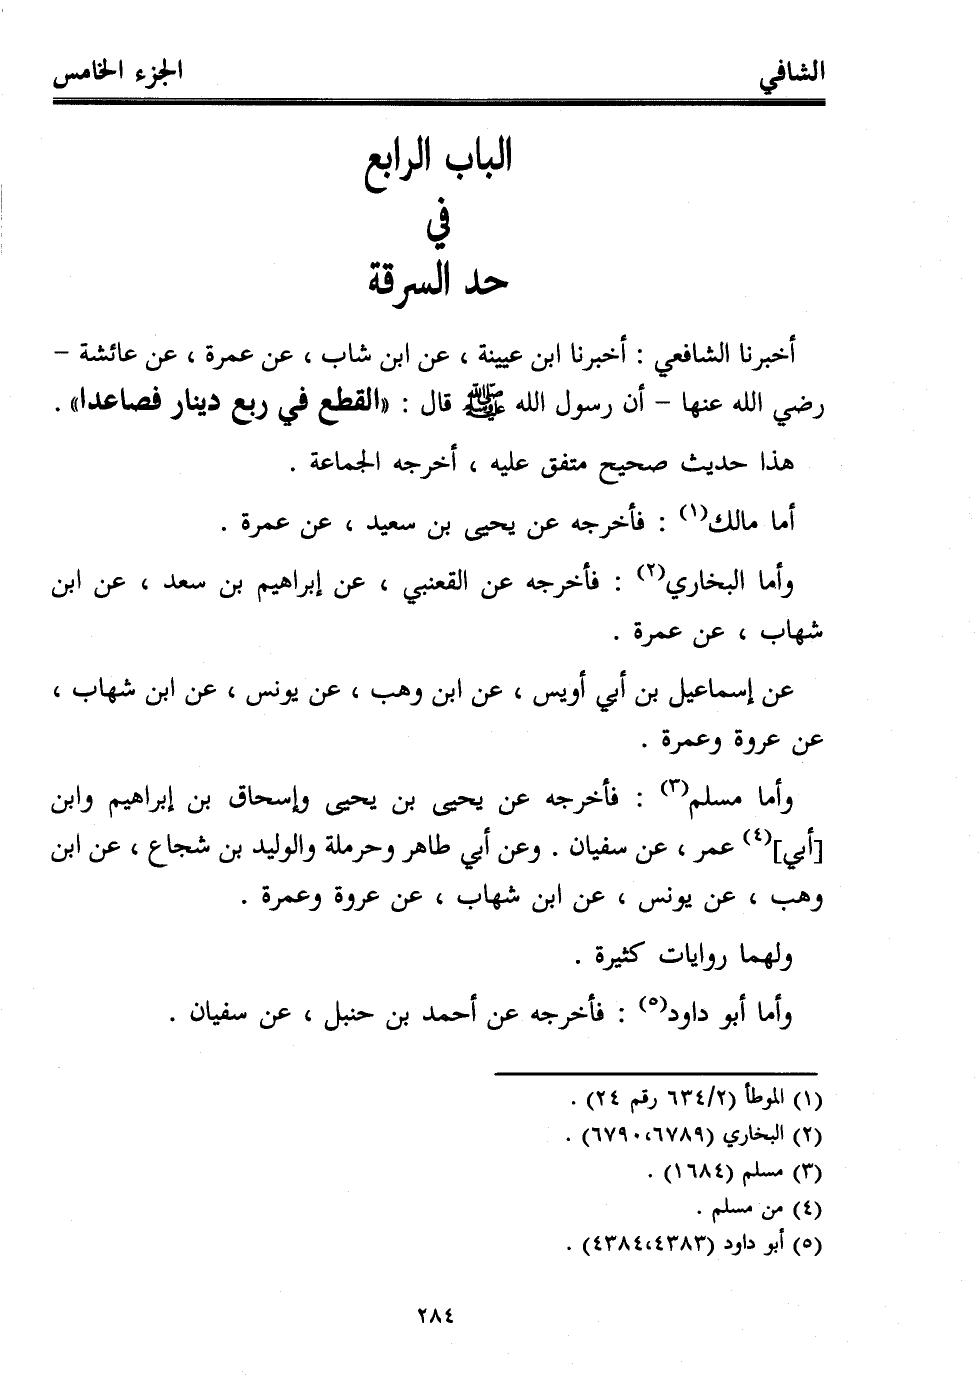 الشافي الجزء الخامس
الباب الرابع
في
حد السرقة
أخبرنا الشافعي : أخبرنا ابن عيينة ، عن ابن شاب ، عن عمرة ، عن عائشة –
رضي الله عنها – أن رسول الله ﷺ قال : «القطع في ربع دينار فصاعدا» .
هذا حديث صحيح متفق عليه ، أخرجه الجماعة .
أما مالك(١) : فأخرجه عن يحيى بن سعيد ، عن عمرة .
وأما البخاري(٢) : فأخرجه عن القعنبي ، عن إبراهيم بن سعد ، عن ابن
شهاب ، عن عمرة .
عن إسماعيل بن أبي أويس ، عن ابن وهب ، عن يونس ، عن ابن شهاب ،
عن عروة وعمرة .
وأما مسلم(٣) : فأخرجه عن يحيى بن يحيى وإسحاق بن إبراهيم وابن
[أبي](٤) عمر ، عن سفيان . وعن أبي طاهر وحرملة والوليد بن شجاع ، عن ابن
وهب ، عن يونس ، عن ابن شهاب ، عن عروة وعمرة .
ولهما روايات كثيرة .
وأما أبو داود(٥) : فأخرجه عن أحمد بن حنبل ، عن سفيان .
(١) الموطأ (٦٣٤/٢ رقم ٢٤) .
(٢) البخاري (٦٧٨٩،٦٧٩٠) .
(٣) مسلم (١٦٨٤) .
(٤) من مسلم .
(٥) أبو داود (٤٣٨٣،٤٣٨٤) .
٢٨٤